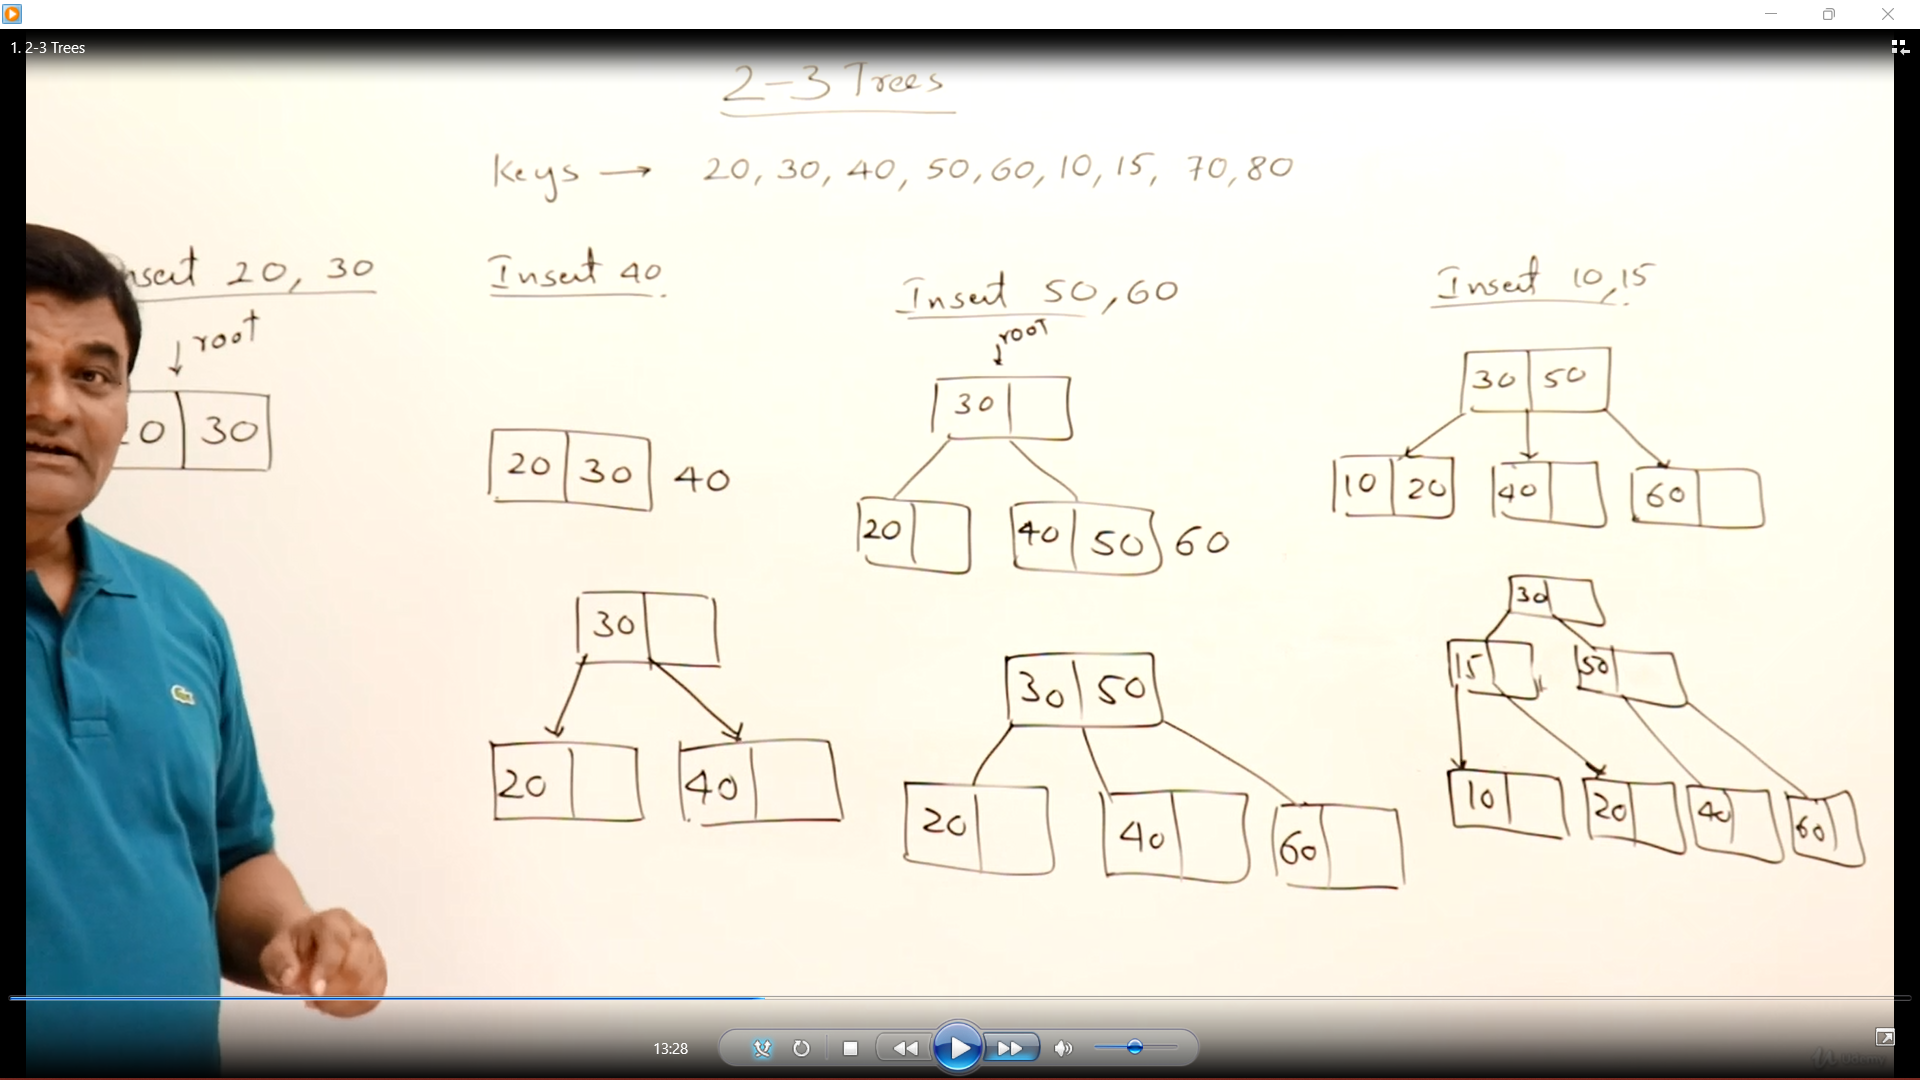 1. 2-3 Trees
2-3 Trees
Keys → 20, 30, 40, 50, 60, 10, 15, 70, 80
nsert 20, 30
↓ root
0 30
Insert 40
20 30 40
30
20 40
Insert 50, 60
↓ root
30
20 40 50 60
30 50
20 40 60
Insert 10, 15
30 50
10 20 40 60
30
15 50
10 20 40 60
13:28
Udemy